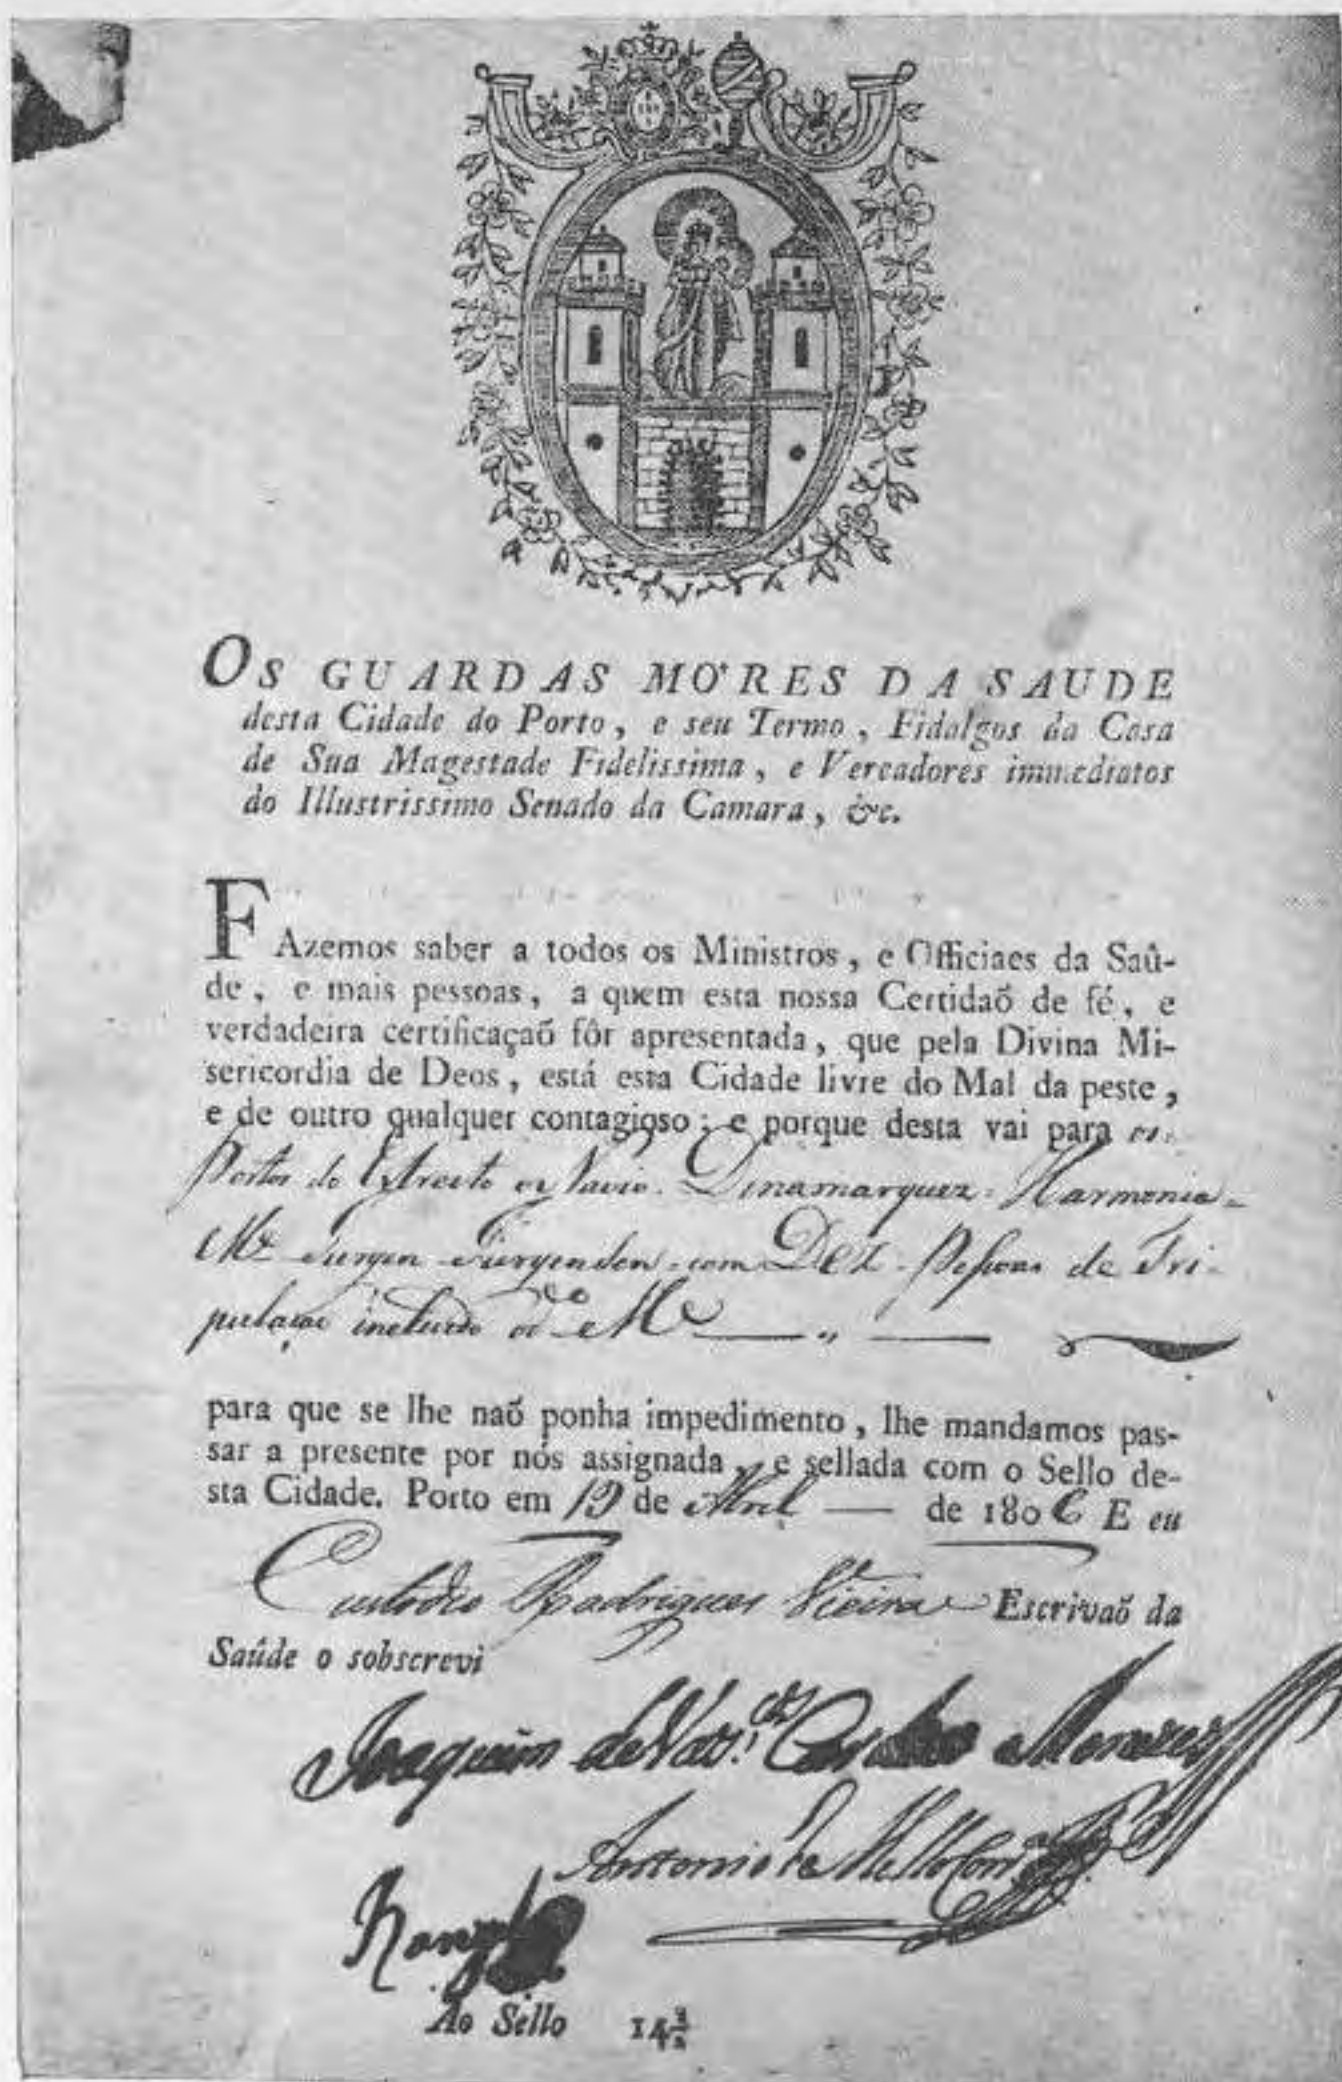 OS GUARDAS MO'RES DA SAUDE
desta Cidade do Porto, e seu Termo, Fidalgos da Casa
de Sua Magestade Fidelissima, e Vereadores immediatos
do Illustrissimo Senado da Camara, &c.
FAzemos saber a todos os Ministros, e Officiaes da Saû-
de, e mais pessoas, a quem esta nossa Certidaõ de fé, e
verdadeira certificaçaõ fôr apresentada, que pela Divina Mi-
sericordia de Deos, está esta Cidade livre do Mal da peste,
e de outro qualquer contagioso; e porque desta vai para os
Portos do Estreito o Navio Dinamarquez Harmonia
Me Jurgen Jurgensen com Dez Pessoas de Tri-
pulação incluido o Me
para que se lhe naõ ponha impedimento, lhe mandamos pas-
sar a presente por nós assignada, e sellada com o Sello de-
sta Cidade. Porto em 19 de Abril de 1806 E eu
Custodio Rodrigues Vieira Escrivaõ da
Saûde o sobscrevi
Joaquim de Cardoso Menezes
Antonio de Mello
Ao Sello 14